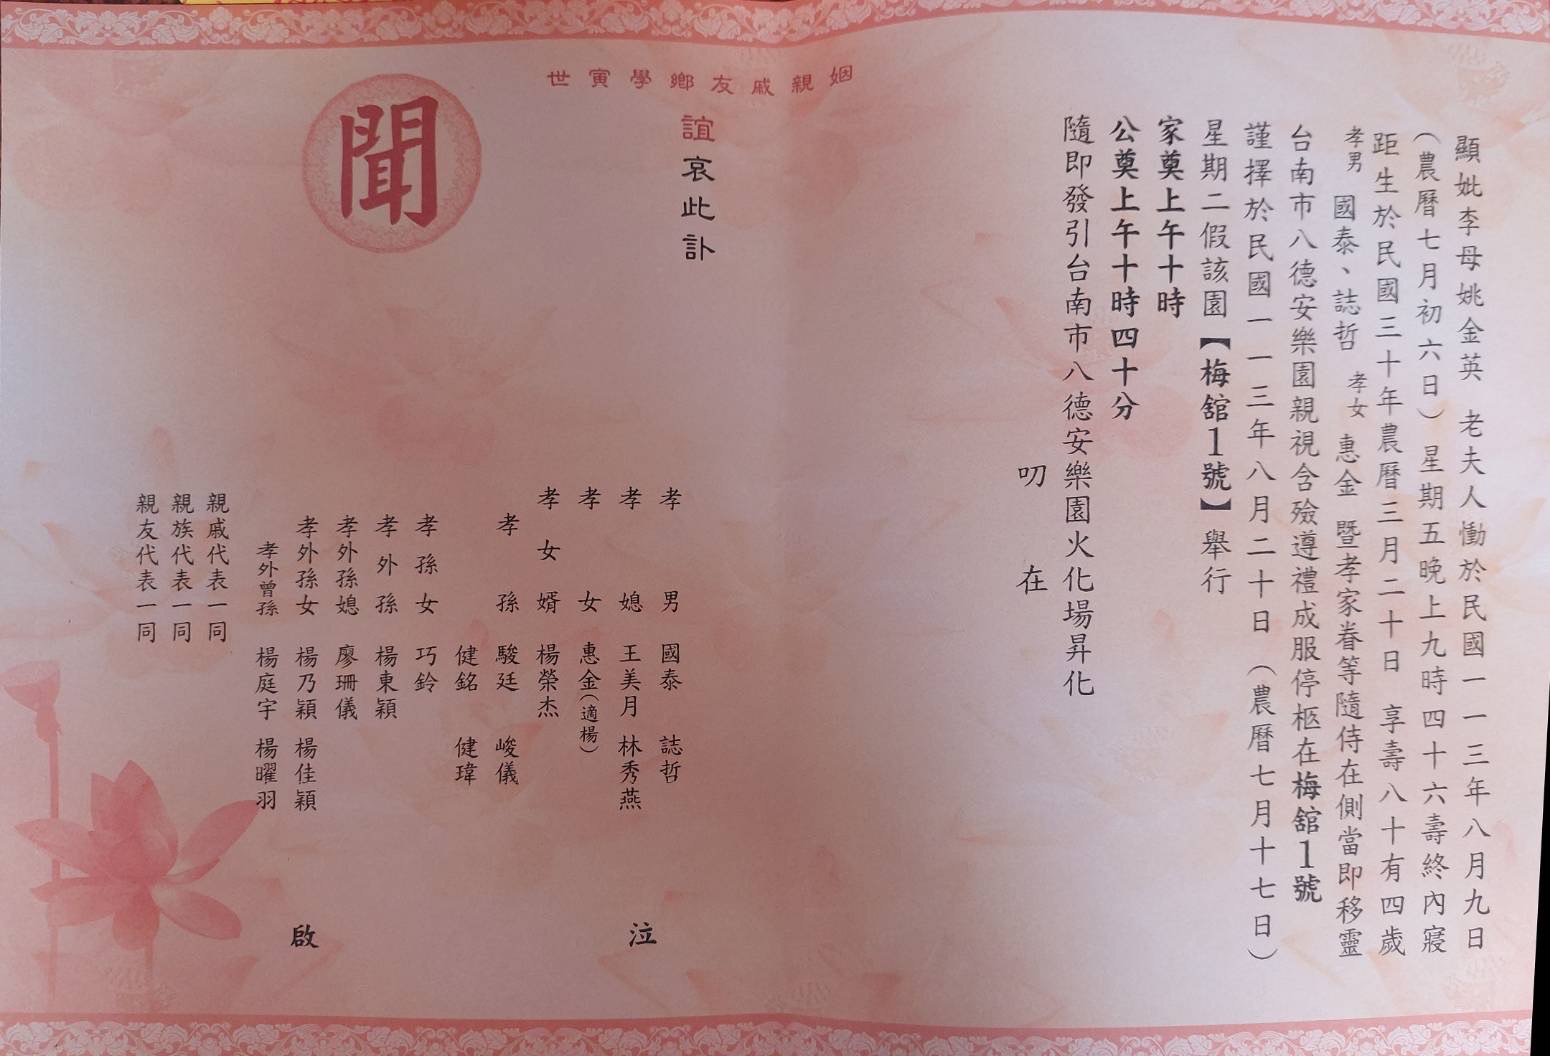 顯妣李母姚金英 老夫人慟於民國一一三年八月九日
(農曆七月初六日) 星期五晚上九時四十六壽終內寢
距生於民國三十年農曆三月二十日 享壽八十有四歲
孝男 國泰、誌哲 孝女 惠金 暨孝家眷等隨侍在側當即移靈
台南市八德安樂園親視含殮遵禮成服停柩在梅舘1號
謹擇於民國一一三年八月二十日 (農曆七月十七日)
星期二假該園【梅舘1號】舉行
家奠上午十時
公奠上午十時四十分
隨即發引台南市八德安樂園火化場昇化
叨 在
姻親戚友鄉學寅世
誼哀此訃
聞
孝男 國泰 誌哲
孝媳 王美月 林秀燕
孝女 惠金(適楊)
孝女婿 楊榮杰
孝孫 駿廷 峻儀
健銘 健瑋
孝孫女 巧鈴
孝外孫 楊東穎
孝外孫媳 廖珊儀
孝外孫女 楊乃穎 楊佳穎
孝外曾孫 楊庭宇 楊曜羽
泣
親戚代表一同
親族代表一同
親友代表一同
啟